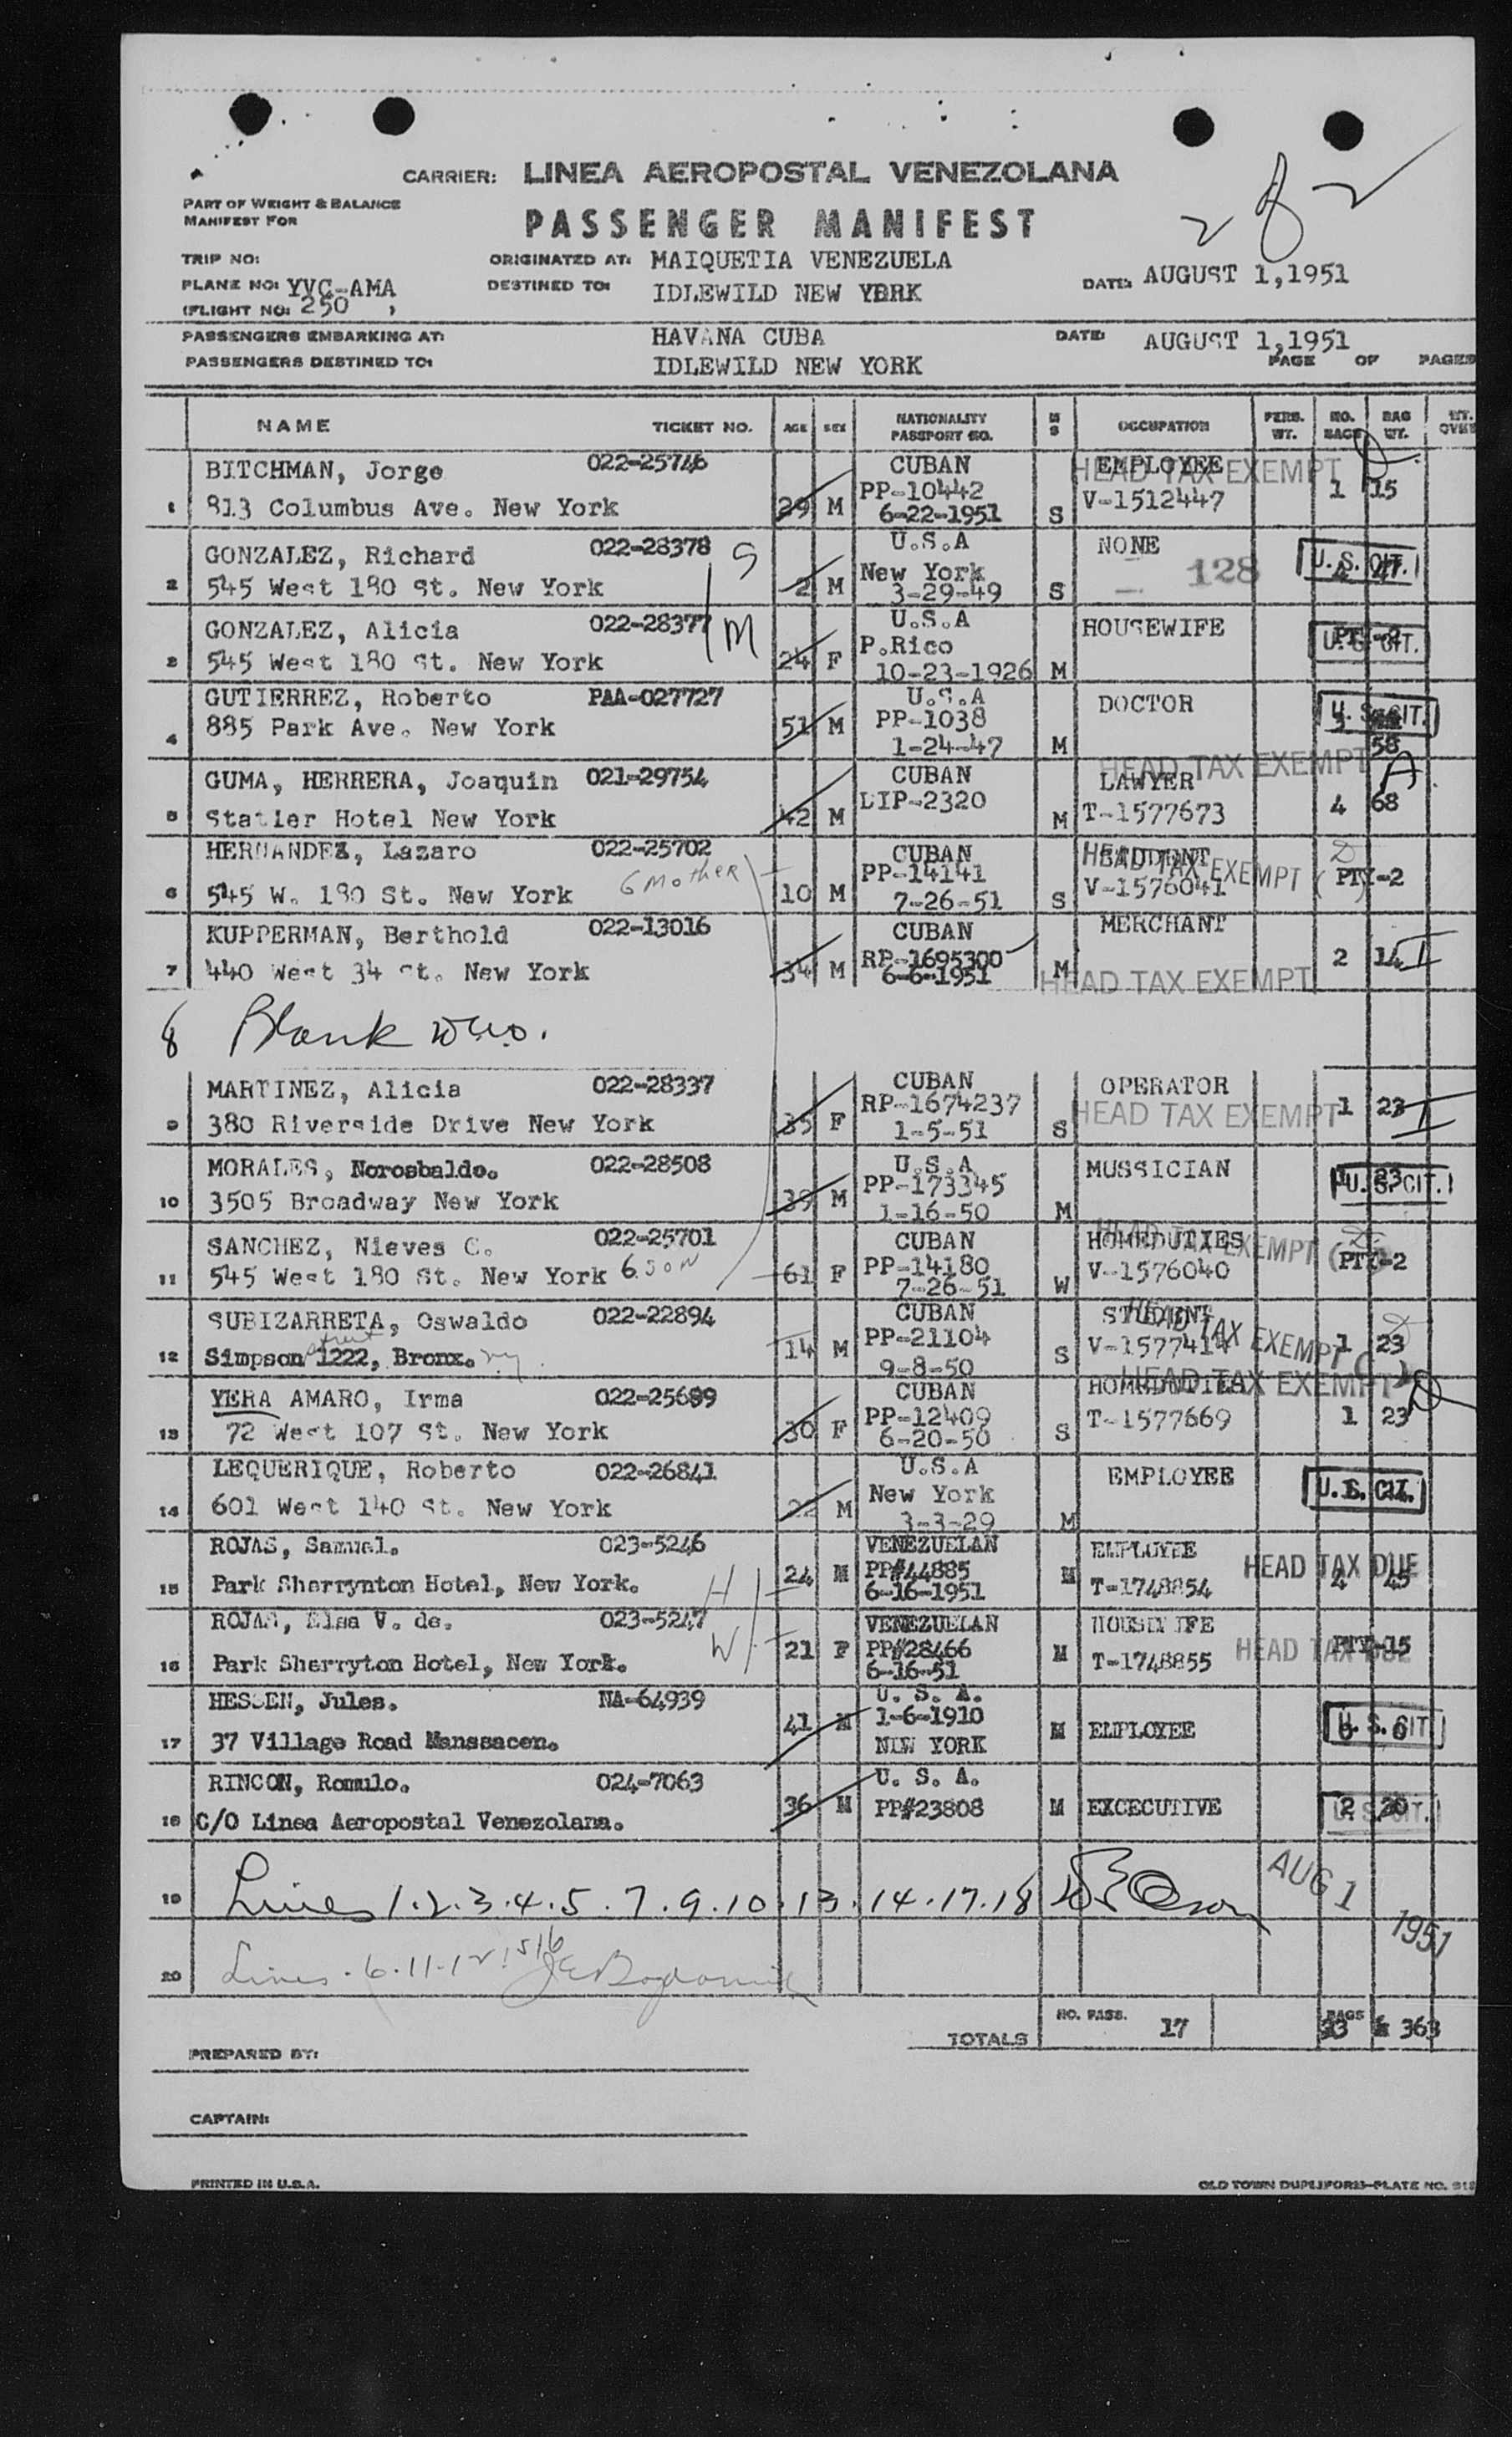 2 of 2
CARRIER: LINEA AEROPOSTAL VENEZOLANA
PART OF WEIGHT & BALANCE
MANIFEST FOR
PASSENGER MANIFEST
TRIP NO:
ORIGINATED AT: MAIQUETIA VENEZUELA
PLANE NO: YVC-AMA
DESTINED TO: IDLEWILD NEW YORK
DATE: AUGUST 1,1951
(FLIGHT NO: 250 )
PASSENGERS EMBARKING AT: HAVANA CUBA
DATE: AUGUST 1,1951
PASSENGERS DESTINED TO: IDLEWILD NEW YORK
PAGE OF PAGES
NAME TICKET NO. AGE SEX NATIONALITY PASSPORT NO. M S OCCUPATION PERS. WT. NO. BAGS BAG WT. WT. OVER
BITCHMAN, Jorge 022-25746 CUBAN EMPLOYEE HEAD TAX EXEMPT D
1 813 Columbus Ave. New York 29 M PP-10442 S V-1512447 1 15
6-22-1951
GONZALEZ, Richard 022-28378 S U.S.A NONE U.S. CIT.
2 545 West 180 St. New York 2 M New York S 128 4 47
3-29-49
GONZALEZ, Alicia 022-28377 M U.S.A HOUSEWIFE PTY-2 U.S. CIT.
3 545 West 180 St. New York 24 F P.Rico M
10-23-1926
GUTIERREZ, Roberto PAA-027727 U.S.A DOCTOR U.S. CIT.
4 885 Park Ave. New York 51 M PP-1038 M 3 58
1-24-47
GUMA, HERRERA, Joaquin 021-29754 CUBAN LAWYER HEAD TAX EXEMPT A
5 Statler Hotel New York 42 M DIP-2320 M T-1577673 4 68
HERNANDEZ, Lazaro 022-25702 CUBAN STUDENT HEAD TAX EXEMPT ( D )
6 545 W. 180 St. New York 6 Mother 10 M PP-14141 S V-1576041 PTY-2
7-26-51
KUPPERMAN, Berthold 022-13016 CUBAN MERCHANT
7 440 West 34 St. New York 34 M RP-1695300 M HEAD TAX EXEMPT 2 14 I
6-6-1951
8 Blank
MARTINEZ, Alicia 022-28337 CUBAN OPERATOR
9 380 Riverside Drive New York 35 F RP-1674237 S HEAD TAX EXEMPT 1 23 I
1-5-51
MORALES, Norosbaldo. 022-28508 U.S.A MUSSICIAN U.S. CIT.
10 3505 Broadway New York 39 M PP-173345 M 1 23
1-16-50
SANCHEZ, Nieves C. 022-25701 CUBAN HOMEDUTIES HEAD TAX EXEMPT ( D )
11 545 West 180 St. New York 6 son 61 F PP-14180 W V-1576040 PTY-2
7-26-51
SUBIZARRETA, Oswaldo 022-22894 CUBAN STUDENT HEAD TAX EXEMPT ( D )
12 Simpson street 1222, Bronx. ny. 14 M PP-21104 S V-1577414 1 23
9-8-50
YERA AMARO, Irma 022-25699 CUBAN HOMEDUTIES HEAD TAX EXEMPT D
13 72 West 107 St. New York 30 F PP-12409 S T-1577669 1 23
6-20-50
LEQUERIQUE, Roberto 022-26841 U.S.A EMPLOYEE U.S. CIT.
14 601 West 140 St. New York 22 M New York M
3-3-29
ROJAS, Samuel. 023-5246 VENEZUELAN EMPLOYEE HEAD TAX DUE
15 Park Sherrynton Hotel, New York. H 24 M PP#44885 M T-1748854 4 45
6-16-1951
ROJAS, Elsa V. de. 023-5247 VENEZUELAN HOUSEWIFE HEAD TAX DUE
16 Park Sherryton Hotel, New York. W 21 F PP#28466 M T-1748855 PTY-15
6-16-51
HESSEN, Jules. NA-64939 U. S. A. U.S. CIT.
17 37 Village Road Manssacen. 41 M 1-6-1910 M EMPLOYEE 0 0
NEW YORK
RINCON, Romulo. 024-7063 U. S. A. U.S. CIT.
18 C/O Linea Aeropostal Venezolana. 36 M PP#23808 M EXCECUTIVE 2 20
19 Lines 1.2.3.4.5.7.9.10.13.14.17.18 AUG 1 1951
20 Lines . 6.11.12.15/16
TOTALS NO. PASS. 17 BAGS 23 363
PREPARED BY:
CAPTAIN:
PRINTED IN U.S.A.
OLD TOWN DUPLIFORM-PLATE NO.